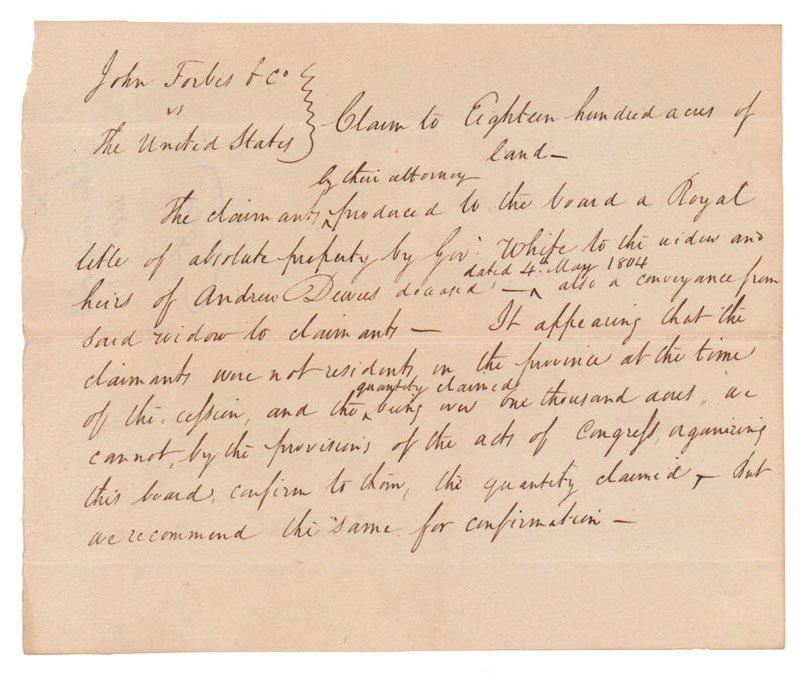 John Forbes & Co
vs
The United States
Claim to Eighteen hundred acres of
land —
by their attorney
The claimants ‸ produced to the board a Royal
title of absolute property by Gov. White to the widow and
dated 4th May 1804
heirs of Andrew Dewees deceased — ‸ also a conveyance from
said widow to claimants — It appearing that the
claimants were not residents in the province at the time
quantity claimed
of the cession, and the ‸ being over one thousand acres, we
cannot, by the provisions of the acts of Congress, organizing
this board, confirm to them, the quantity claimed, — But
we recommend the same for confirmation —